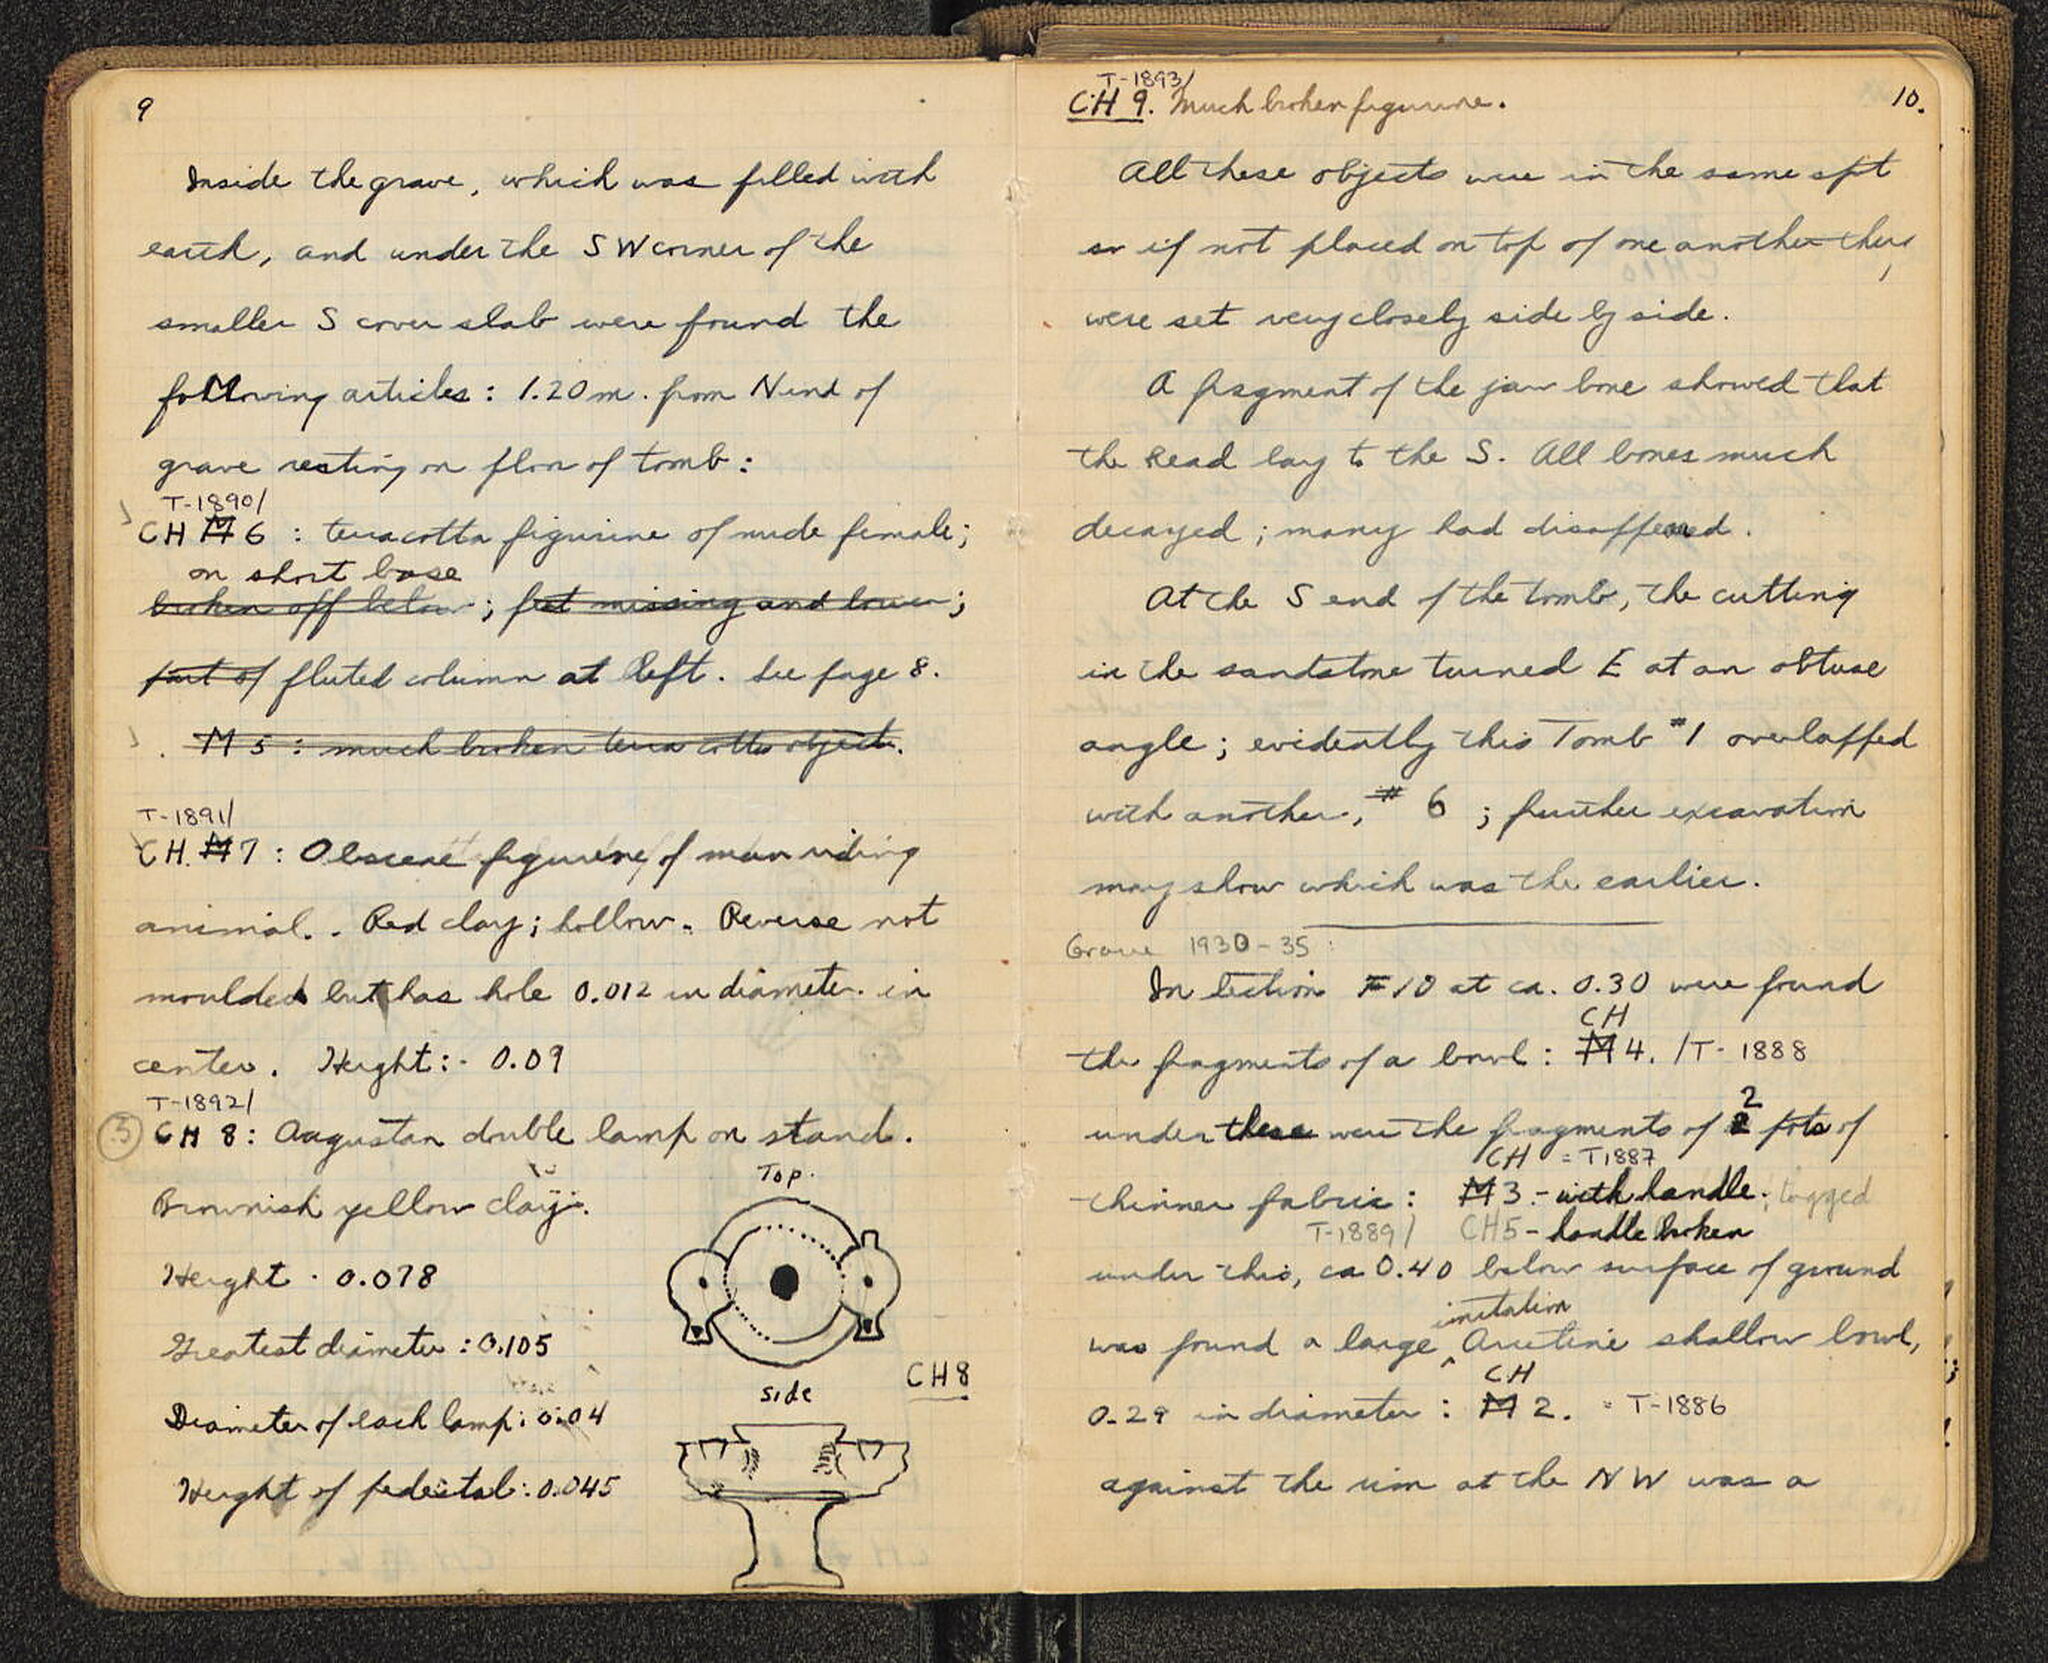 9
Inside the grave, which was filled with
earth, and under the SW corner of the
smaller S cover slab were found the
following articles: 1.20 m. from N end of
grave resting on floor of tomb:
T-1890/
CH M 6 : terracotta figurine of nude female;
on short base
broken off below; feet missing and lower;
part of fluted column at left. See page 8.
M 5 : much broken terra cotta object.
T-1891/
CH. M 7 : Obscene figurine of man riding
animal. . Red clay; hollow. Reverse not
moulded but has hole 0.012 in diameter. in
center. Height: - 0.09
T-1892/
5 CH 8: Augustan double lamp on stand.
Brownish yellow clay.
Top.
Height . 0.078
Greatest diameter : 0.105
CH8
side
Diameter of each lamp: 0.04
Height of pedestal: 0.045
T-1893/
CH 9. Much broken figurine.
10.
All these objects were in the same spot
or if not placed on top of one another they
were set very closely side by side.
A fragment of the jaw bone showed that
the head lay to the S. All bones much
decayed ; many had disappeared.
At the S end of the tomb, the cutting
in the sandstone turned E at an obtuse
angle ; evidently this Tomb #1 overlapped
with another, # 6 ; further excavation
may show which was the earlier.
Grave 1930-35 :
In section F10 at ca. 0.30 were found
CH
the fragments of a bowl : M 4. /T- 1888
2
under these were the fragments of 2 pots of
CH = T1887
thinner fabric : M 3.- with handle; tagged
T-1889/ CH5 - handle broken
under this, ca 0.40 below surface of ground
imitation
was found a large ^ Arretine shallow bowl,
CH
0.29 in diameter : M 2. = T-1886
against the rim at the NW was a